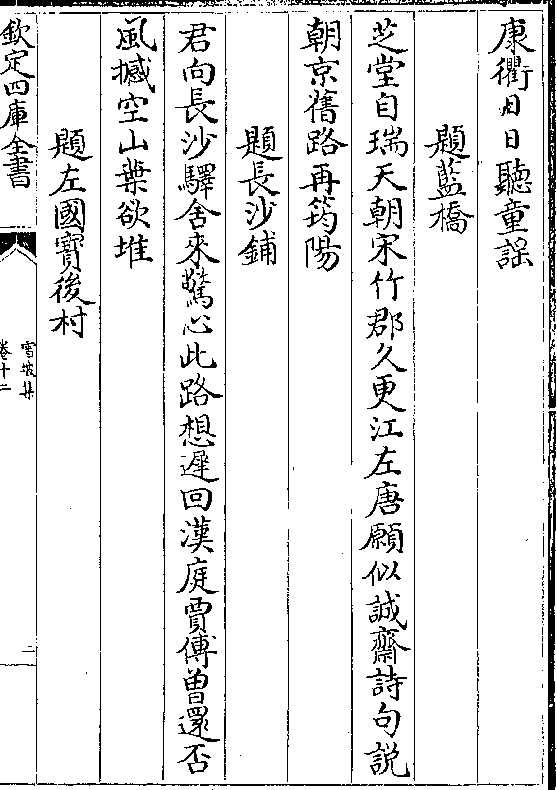 康衢日日聽童謡
題藍橋
芝堂自瑞天朝宋竹郡久更江左唐願似誠齋詩句説
朝京舊路再筠陽
題長沙鋪
君向長沙驛舍來驚心此路想遲回漢庭賈傅曽還否
風撼空山葉欲堆
題左國寳後村
欽定四庫全書
雪坡集
卷十二
二